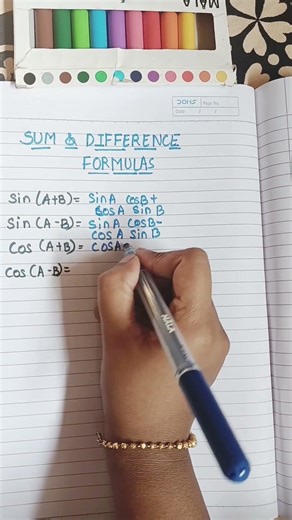 DOMS
Page No.
Date / /
SUM & DIFFERENCE
FORMULAS
Sin (A+B) = SinA CosB +
CosA SinB
Sin (A-B) = SinA CosB-
CosA SinB
Cos (A+B) = CosA
Cos (A-B) =